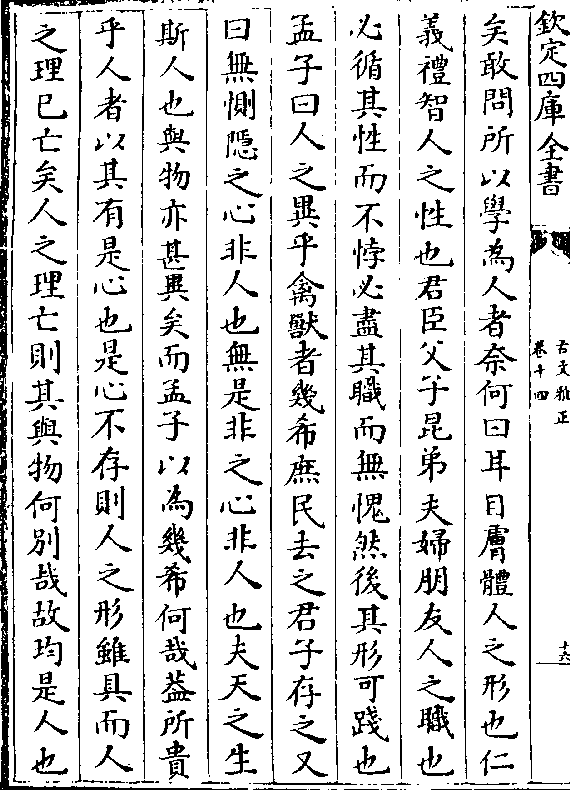 欽定四庫全書
古文雅正
卷十四
十六
矣敢問所以學為人者奈何曰耳目膚體人之形也仁
義禮智人之性也君臣父子昆弟夫婦朋友人之職也
必循其性而不悖必盡其職而無愧然後其形可踐也
孟子曰人之異乎禽獸者幾希庶民去之君子存之又
曰無惻隱之心非人也無是非之心非人也夫天之生
斯人也與物亦甚異矣而孟子以為幾希何哉葢所貴
乎人者以其有是心也是心不存則人之形雖具而人
之理已亡矣人之理亡則其與物何別哉故均是人也